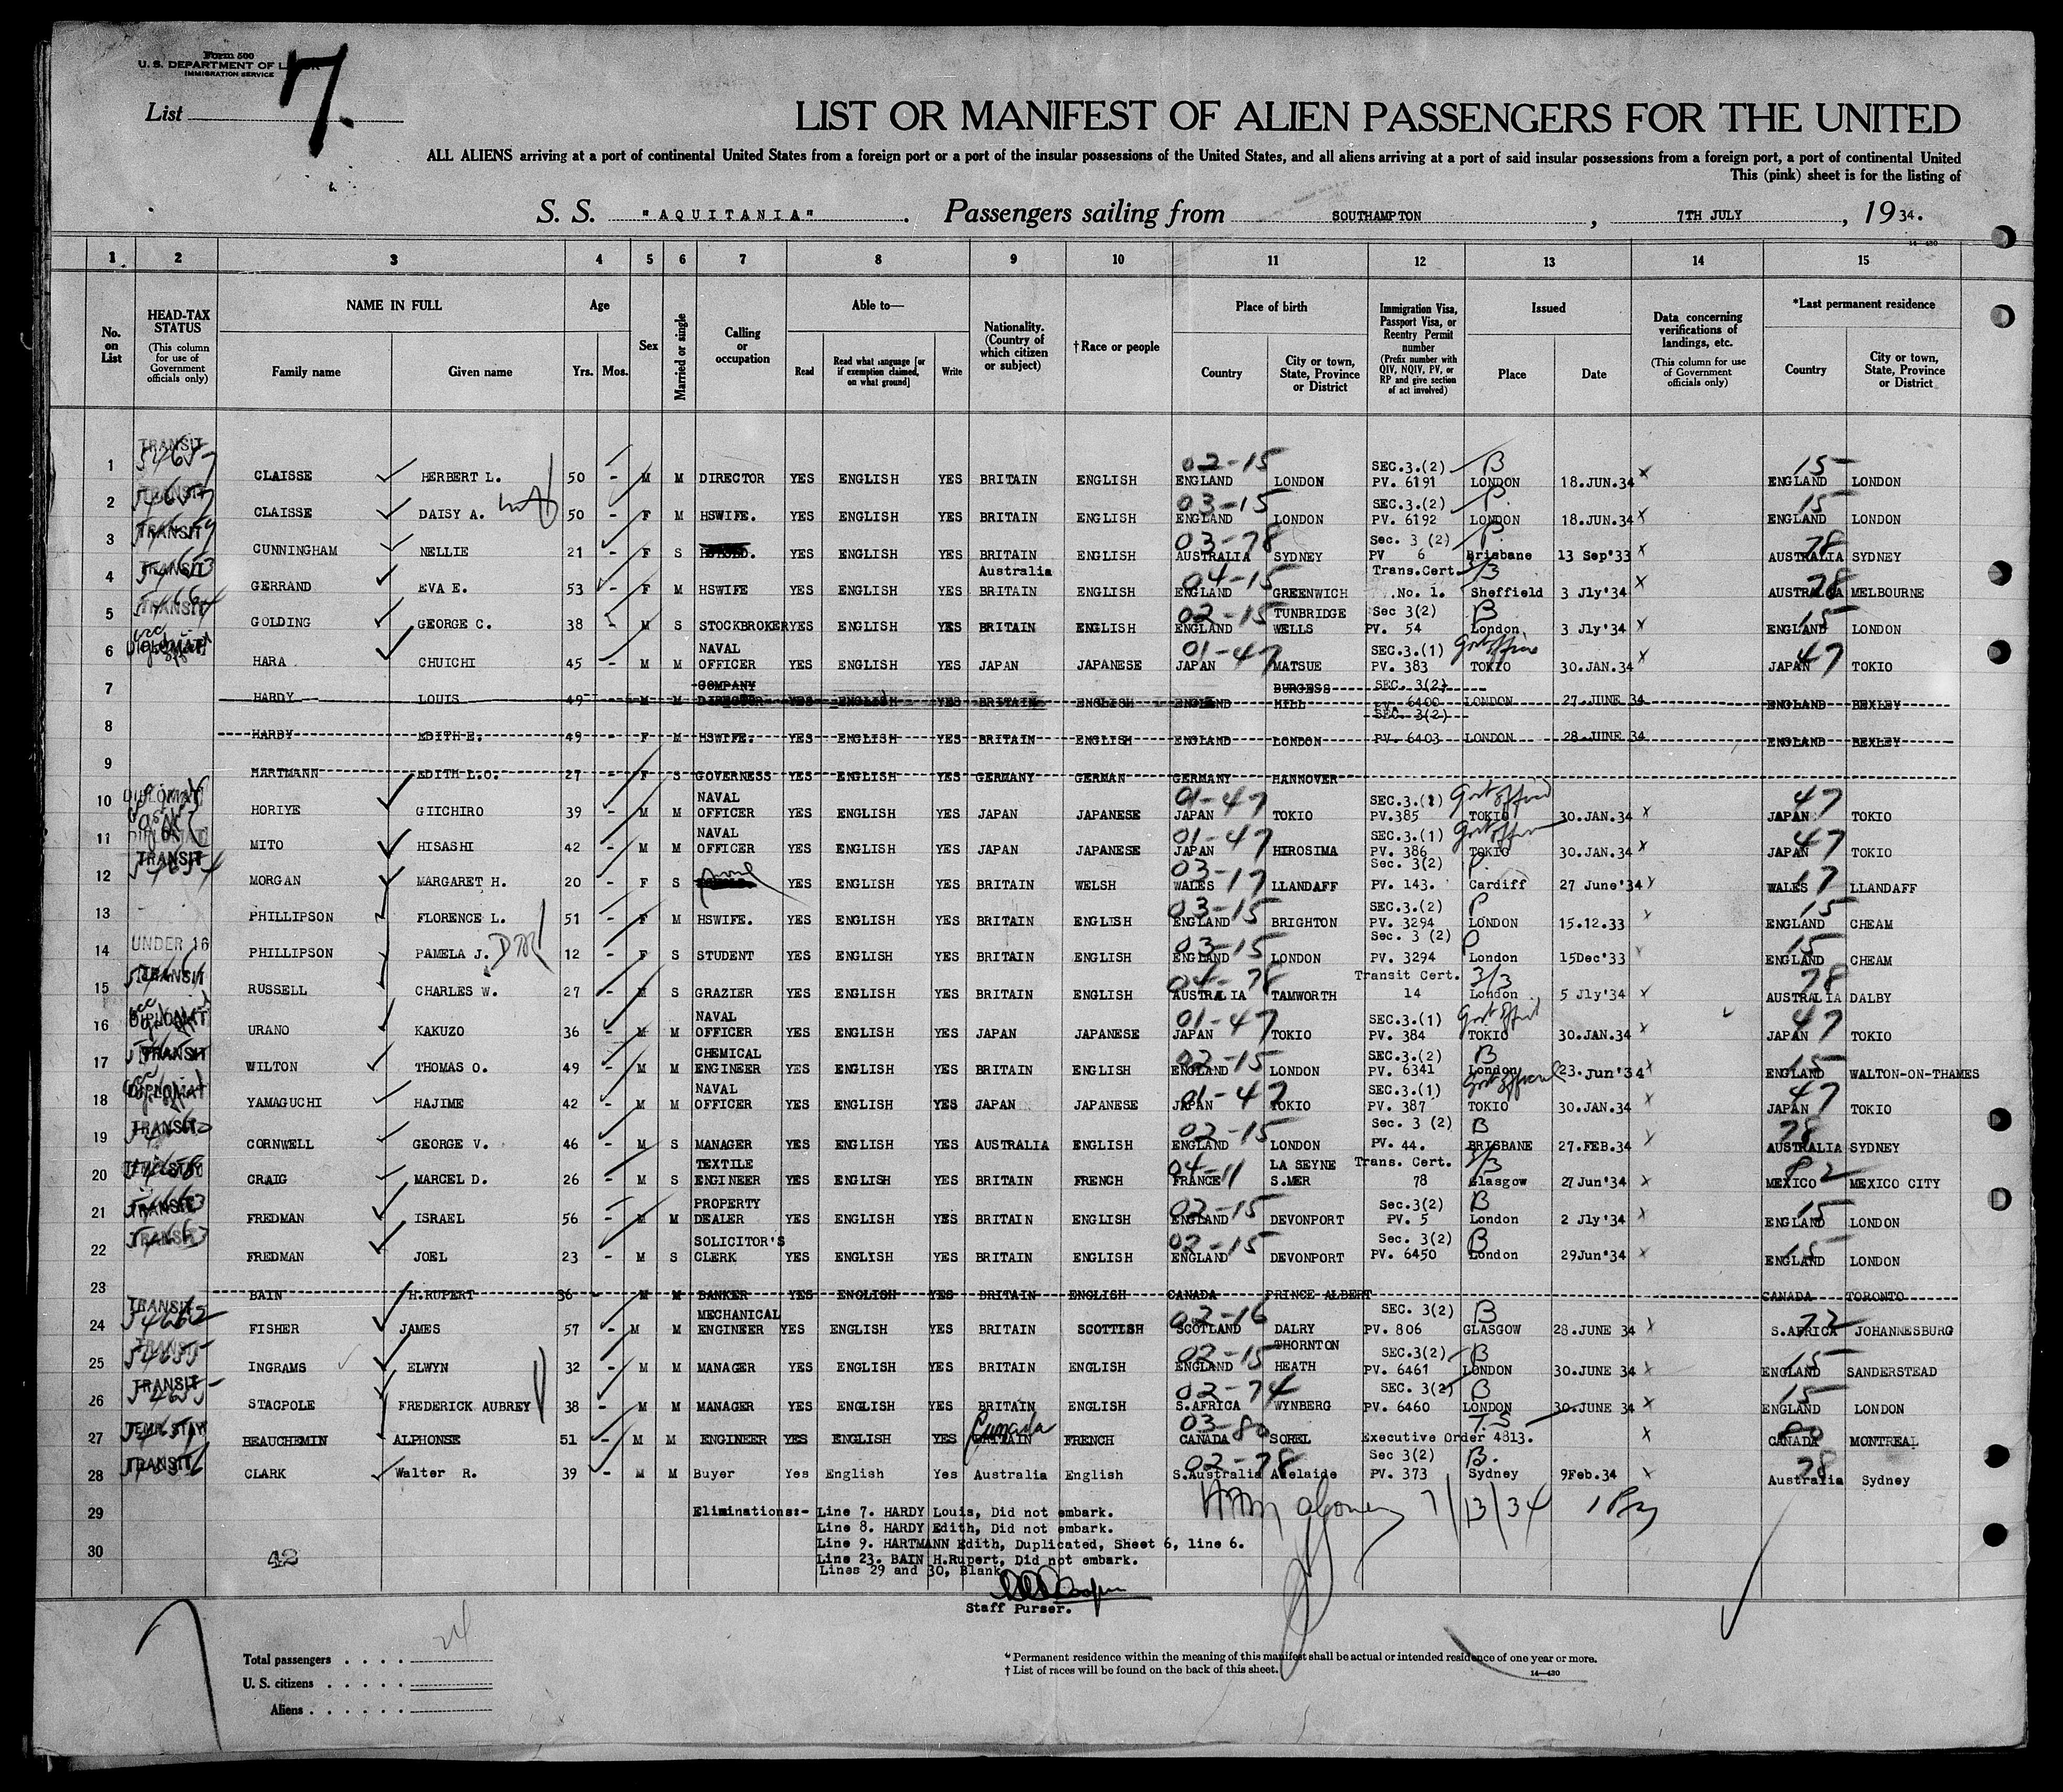 Form 500
U. S. DEPARTMENT OF LABOR
IMMIGRATION SERVICE
List 7.
LIST OR MANIFEST OF ALIEN PASSENGERS FOR THE UNITED
ALL ALIENS arriving at a port of continental United States from a foreign port or a port of the insular possessions of the United States, and all aliens arriving at a port of said insular possessions from a foreign port, a port of continental United
This (pink) sheet is for the listing of
S. S. "AQUITANIA". Passengers sailing from SOUTHAMPTON, 7TH JULY, 1934.
14—430
1 2 3 4 5 6 7 8 9 10 11 12 13 14 15
No. on List
HEAD-TAX STATUS (This column for use of Government officials only)
NAME IN FULL Family name Given name
Age Yrs. Mos.
Sex
Married or single
Calling or occupation
Able to— Read Read what language [or if exemption claimed, on what ground] Write
Nationality. (Country of which citizen or subject)
†Race or people
Place of birth Country City or town, State, Province or District
Immigration Visa, Passport Visa, or Reentry Permit number (Prefix number with QIV, NQIV, PV, or RP and give section of act involved)
Issued Place Date
Data concerning verifications of landings, etc. (This column for use of Government officials only)
*Last permanent residence Country City or town, State, Province or District
1 TRANSIT CLAISSE HERBERT L. 50 - M M DIRECTOR YES ENGLISH YES BRITAIN ENGLISH 02-15 ENGLAND LONDON SEC.3.(2) PV. 6191 B LONDON 18.JUN.34 X 15 ENGLAND LONDON
2 TRANSIT CLAISSE DAISY A. 50 - F M HSWIFE. YES ENGLISH YES BRITAIN ENGLISH 03-15 ENGLAND LONDON SEC.3.(2) PV. 6192 P. LONDON 18.JUN.34 X 15 ENGLAND LONDON
3 TRANSIT CUNNINGHAM NELLIE 21 - F S YES ENGLISH YES BRITAIN Australia ENGLISH 03-78 AUSTRALIA SYDNEY Sec. 3 (2) PV 6 P. Brisbane 13 Sep'33 X 78 AUSTRALIA SYDNEY
4 TRANSIT GERRAND EVA E. 53 - F M HSWIFE YES ENGLISH YES BRITAIN ENGLISH 04-15 ENGLAND GREENWICH Trans.Cert. No. 1. 3/3 Sheffield 3 Jly'34 X 78 AUSTRALIA MELBOURNE
5 TRANSIT GOLDING GEORGE C. 38 - M S STOCKBROKER YES ENGLISH YES BRITAIN ENGLISH 02-15 ENGLAND TUNBRIDGE WELLS Sec 3(2) PV. 54 B London 3 Jly'34 X 15 ENGLAND LONDON
6 DIPLOMAT HARA CHUICHI 45 - M M NAVAL OFFICER YES ENGLISH YES JAPAN JAPANESE 01-47 JAPAN MATSUE SEC.3.(1) PV. 383 TOKIO 30.JAN.34 X 47 JAPAN TOKIO
7 HARDY LOUIS 49 - M M COMPANY DIRECTOR YES ENGLISH YES BRITAIN ENGLISH ENGLAND BURGESS HILL SEC. 3(2) PV. 6400 LONDON 27.JUNE 34 ENGLAND BEXLEY
8 HARDY EDITH E. 49 - F M HSWIFE. YES ENGLISH YES BRITAIN ENGLISH ENGLAND LONDON SEC. 3(2) PV. 6403 LONDON 28.JUNE 34 ENGLAND BEXLEY
9 HARTMANN EDITH L.O. 27 - F S GOVERNESS YES ENGLISH YES GERMANY GERMAN GERMANY HANNOVER
10 DIPLOMAT HORIYE GIICHIRO 39 - M M NAVAL OFFICER YES ENGLISH YES JAPAN JAPANESE 01-47 JAPAN TOKIO SEC.3.(1) PV.385 TOKIO 30.JAN.34 X 47 JAPAN TOKIO
11 DIPLOMAT MITO HISASHI 42 - M M NAVAL OFFICER YES ENGLISH YES JAPAN JAPANESE 01-47 JAPAN HIROSIMA SEC.3.(1) PV. 386 TOKIO 30.JAN.34 X 47 JAPAN TOKIO
12 TRANSIT MORGAN MARGARET H. 20 - F S YES ENGLISH YES BRITAIN WELSH 03-17 WALES LLANDAFF Sec. 3(2) PV. 143. P. Cardiff 27 June'34 17 WALES LLANDAFF
13 PHILLIPSON FLORENCE L. 51 - F M HSWIFE. YES ENGLISH YES BRITAIN ENGLISH 03-15 ENGLAND BRIGHTON SEC.3.(2) PV. 3294 P LONDON 15.12.33 15 ENGLAND CHEAM
14 UNDER 16 PHILLIPSON PAMELA J. 12 - F S STUDENT YES ENGLISH YES BRITAIN ENGLISH 03-15 ENGLAND LONDON Sec. 3 (2) PV. 3294 P London 15Dec'33 15 ENGLAND CHEAM
15 TRANSIT RUSSELL CHARLES W. 27 - M S GRAZIER YES ENGLISH YES BRITAIN ENGLISH 04-78 AUSTRALIA TAMWORTH Transit Cert. 14 3/3 London 5 Jly'34 78 AUSTRALIA DALBY
16 DIPLOMAT URANO KAKUZO 36 - M M NAVAL OFFICER YES ENGLISH YES JAPAN JAPANESE 01-47 JAPAN TOKIO SEC.3.(1) PV. 384 TOKIO 30.JAN.34 X 47 JAPAN TOKIO
17 TRANSIT WILTON THOMAS O. 49 - M M CHEMICAL ENGINEER YES ENGLISH YES BRITAIN ENGLISH 02-15 ENGLAND LONDON SEC.3.(2) PV. 6341 B London 23.Jun'34 X 15 ENGLAND WALTON-ON-THAMES
18 DIPLOMAT YAMAGUCHI HAJIME 42 - M M NAVAL OFFICER YES ENGLISH YES JAPAN JAPANESE 01-47 JAPAN TOKIO SEC.3.(1) PV. 387 TOKIO 30.JAN.34 47 JAPAN TOKIO
19 TRANSIT CORNWELL GEORGE V. 46 - M S MANAGER YES ENGLISH YES AUSTRALIA ENGLISH 02-15 ENGLAND LONDON Sec. 3 (2) PV. 44. B BRISBANE 27.FEB.34 78 AUSTRALIA SYDNEY
20 TEMP STAY CRAIG MARCEL D. 26 - M S TEXTILE ENGINEER YES ENGLISH YES BRITAIN FRENCH 04-11 FRANCE LA SEYNE S.MER Trans. Cert. 78 3/3 Glasgow 27 Jun'34 X 82 MEXICO MEXICO CITY
21 TRANSIT FREDMAN ISRAEL 56 - M M PROPERTY DEALER YES ENGLISH YES BRITAIN ENGLISH 02-15 ENGLAND DEVONPORT Sec.3(2) PV. 5 B London 2 Jly'34 X 15 ENGLAND LONDON
22 TRANSIT FREDMAN JOEL 23 - M S SOLICITOR'S CLERK YES ENGLISH YES BRITAIN ENGLISH 02-15 ENGLAND DEVONPORT Sec. 3(2) PV. 6450 B London 29Jun'34 X 15 ENGLAND LONDON
23 BAIN H.RUPERT 36 - M M BANKER YES ENGLISH YES BRITAIN ENGLISH CANADA PRINCE ALBERT CANADA TORONTO
24 TRANSIT FISHER JAMES 57 - M M MECHANICAL ENGINEER YES ENGLISH YES BRITAIN SCOTTISH 02-16 SCOTLAND DALRY SEC. 3(2) PV. 806 B GLASGOW 28.JUNE 34 X 72 S.AFRICA JOHANNESBURG
25 TRANSIT INGRAMS ELWYN 32 - M M MANAGER YES ENGLISH YES BRITAIN ENGLISH 02-15 ENGLAND THORNTON HEATH SEC.3(2) PV. 6461 B LONDON 30.JUNE 34 X 15 ENGLAND SANDERSTEAD
26 TRANSIT STACPOLE FREDERICK AUBREY 38 - M M MANAGER YES ENGLISH YES BRITAIN ENGLISH 02-74 S.AFRICA WYNBERG SEC. 3(2) PV. 6460 B LONDON 30.JUNE 34 X 15 ENGLAND LONDON
27 TEMP STAY BEAUCHEMIN ALPHONSE 51 - M M ENGINEER YES ENGLISH YES BRITAIN Canada FRENCH 03-80 CANADA SOREL Executive Order 4813. T.S X 80 CANADA MONTREAL
28 TRANSIT CLARK Walter R. 39 - M M Buyer Yes English Yes Australia English 02-78 S.Australia Adelaide Sec 3(2) PV. 373 B. Sydney 9Feb.34 X 78 Australia Sydney
29 Eliminations:- Line 7. HARDY Louis, Did not embark. 7/13/34
Line 8. HARDY Edith, Did not embark.
Line 9. HARTMANN Edith, Duplicated, Sheet 6, line 6.
30 Line 23. BAIN H.Rupert, Did not embark.
Lines 29 and 30, Blank
42
Staff Purser.
Total passengers 24
U. S. citizens
Aliens
* Permanent residence within the meaning of this manifest shall be actual or intended residence of one year or more.
† List of races will be found on the back of this sheet.
14—430